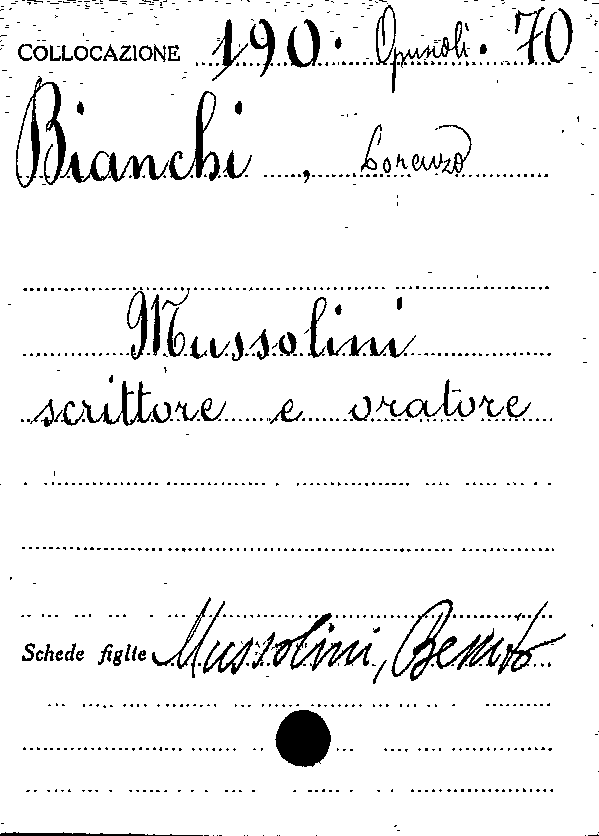 COLLOCAZIONE 190. Opusoli. 70
Bianchi, Lorenzo
Mussolini
scrittore e oratore
Schede figlie Mussolini, Benito